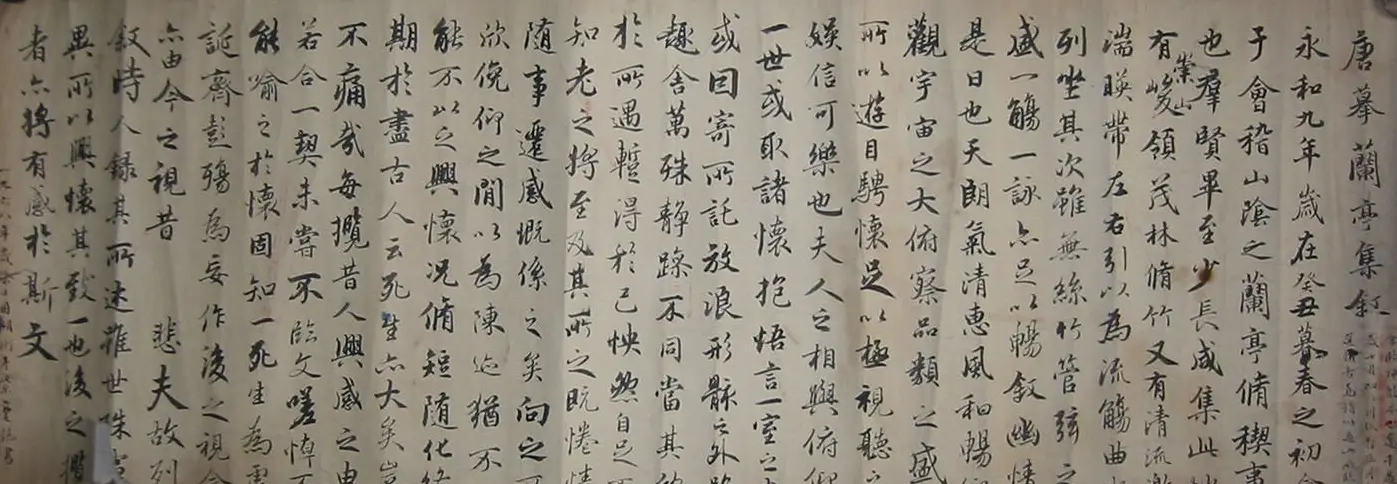 唐摹蘭亭集敘
永和九年歲在癸丑暮春之初會
于會稽山陰之蘭亭脩稧事
也羣賢畢至少長咸集此地
有崇山峻領茂林脩竹又有清流激
湍暎帶左右引以為流觴曲
列坐其次雖無絲竹管弦之
盛一觴一詠亦足以暢敘幽情
是日也天朗氣清惠風和暢
觀宇宙之大俯察品類之盛
所以遊目騁懷足以極視聽之
娛信可樂也夫人之相與俯仰
一世或取諸懷抱悟言一室之
或因寄所託放浪形骸之外
趣舍萬殊靜躁不同當其欣
於所遇蹔得於己怏然自足不
知老之將至及其所之既惓情
隨事遷感慨係之矣向之
欣俛仰之閒以為陳迹猶不
能不以之興懷況脩短隨化終
期於盡古人云死生亦大矣豈
不痛哉每攬昔人興感之由
若合一契未嘗不臨文嗟悼不
能喻之於懷固知一死生為虛
誕齊彭殤為妄作後之視今
亦由今之視昔 悲夫故列
敘時人錄其所述雖世殊
異所以興懷其致一也後之攬
者亦將有感於斯文